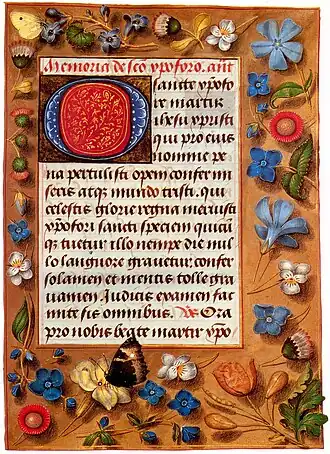 Memoria de sco xpoforo. ant
O sancte xpofo
re martir
ihesu xpristi
qui pro eius
nomine pe
na pertulisti opem confer mi
seris atqꝫ mundo tristi. qui
celestis glorie regna meruisti
xpofori sancti speciem quicū
qꝫ tuetur illo nempe die nul
lo languore grauetur. confer
solamen et mentis tolle gra
uamen Iudicis examen fac
mite sis omnibus. Vs Ora
pro nobis beate martir xpō